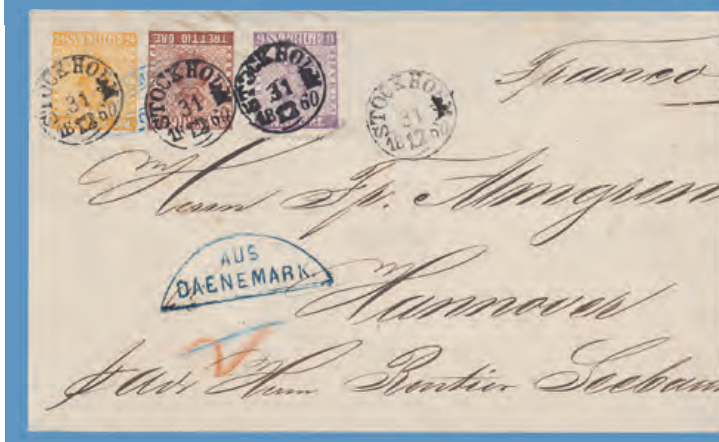 TRETTIO ÖRE
STOCKHOLM
31
1812 60
STOCKHOLM
31
1812 60
STOCKHOLM
31
1812 60
STOCKHOLM
31
1812 60
Franco
Herrn Fr. Almgren
AUS
DAENEMARK.
Hannover
Herrn Rentier Seebaum